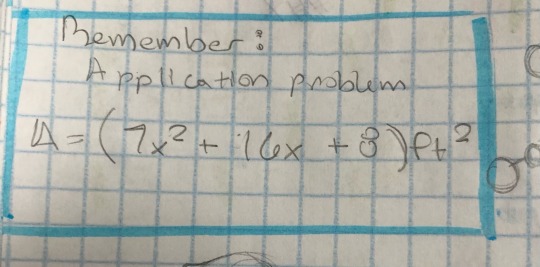 Remember:
Application problem
A = (7x² + 16x + 8) ft²